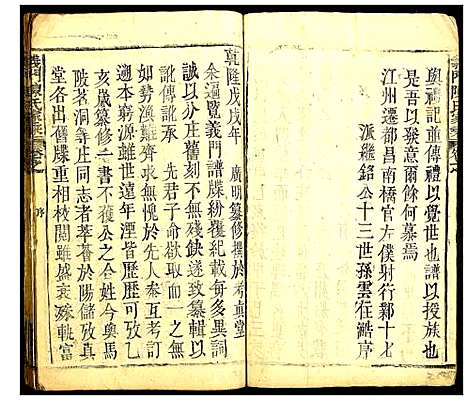 與禮記並傳禮以覺世也譜以授族也
吾以發意爾餘何慕焉
江州遷都昌南橋官左僕射行鄴十七
派繼銘公十三世孫雲在諧序
乾隆戊戌年 廣明纂修櫂於考真堂
余遍覽義門譜牒紛覆紀載每多異詞
誠以分庄舊刻不無殘缺遂致纂輯以
訛傳訛承 先君子命欲取而一之無
如勢渙難齊求無愧於先人叅互考訂
遡本窮源雖世遠年湮皆歷歷可
亥歲纂修一書不獲公之合姓今奥馬
陂茗洞等庄同志者萃薈於陽儲攷真
堂各出舊牒重相校閱雖盛衰殊軌富
序